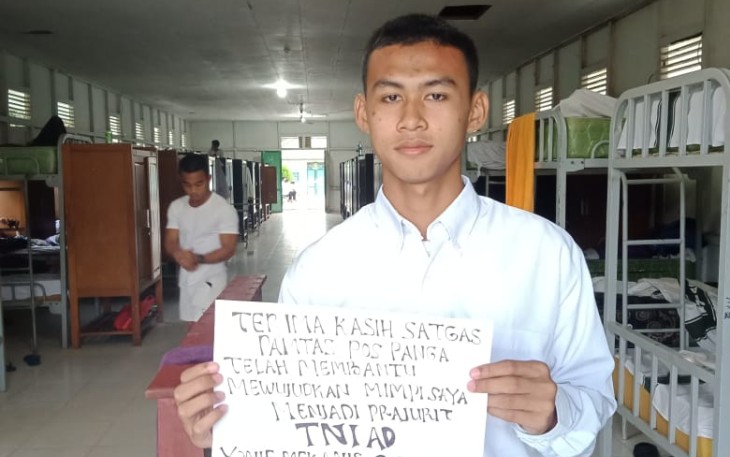 TERIMA KASIH SATGAS
PAMTAS POS PANGA
TELAH MEMBANTU
MEWUJUDKAN MIMPI SAYA
MENJADI PRAJURIT
TNI AD